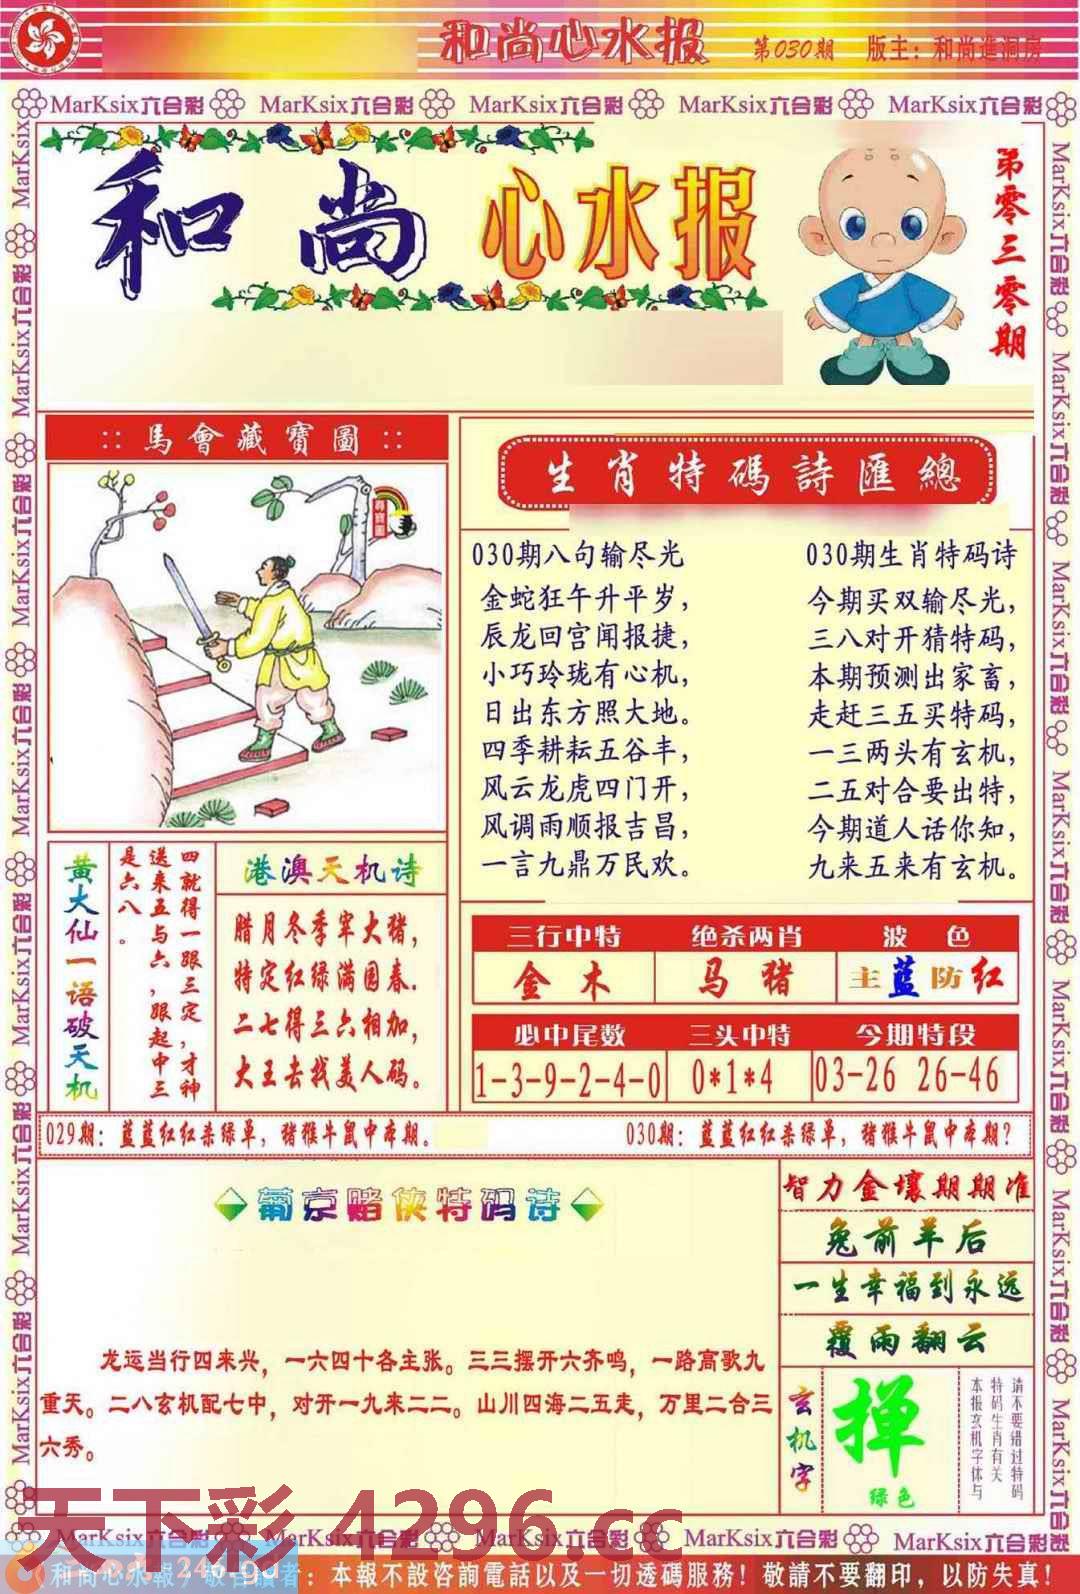 和尚心水报 第030期 版主：和尚進洞房
MarKsix六合彩 MarKsix六合彩 MarKsix六合彩 MarKsix六合彩 MarKsix六合彩
和尚心水报
第零三零期
::馬會藏寶圖::
生肖特碼詩匯總
030期八句输尽光
金蛇狂午升平岁，
辰龙回宫闻报捷，
小巧玲珑有心机，
日出东方照大地。
四季耕耘五谷丰，
风云龙虎四门开，
风调雨顺报吉昌，
一言九鼎万民欢。
030期生肖特码诗
今期买双输尽光，
三八对开猜特码，
本期预测出家畜，
走赶三五买特码，
一三两头有玄机，
二五对合要出特，
今期道人话你知，
九来五来有玄机。
黄大仙一语破天机
四就得一跟三定，才神
送来五与六，跟起中三
是六八。
港澳天机诗
腊月冬季宰大猪，
特定红绿满园春.
二七得三六相加，
大王去找美人码。
三行中特 绝杀两肖 波色
金木 马猪 主蓝防红
必中尾数 三头中特 今期特段
1-3-9-2-4-0 0*1*4 03-26 26-46
029期：蓝蓝红红杀绿单，猪猴牛鼠中本期。 030期：蓝蓝红红杀绿单，猪猴牛鼠中本期？
葡京赌侠特码诗
龙运当行四来兴，一六四十各主张。三三摆开六齐鸣，一路高歌九
重天。二八玄机配七中，对开一九来二二。山川四海二五走，万里二合三
六秀。
智力金壤期期准
兔前羊后
一生幸福到永远
覆雨翻云
玄机字
禅
绿色
请不要错过特码
特码生肖有关
本报玄机字体与
天下彩 4296.cc
MarKsix六合彩 MarKsix六合彩 MarKsix六合彩 MarKsix六合彩 MarKsix六合彩
246.gd
和尚心水報 敬告讀者：本報不設咨詢電話以及一切透碼服務！敬請不要翻印，以防失真！